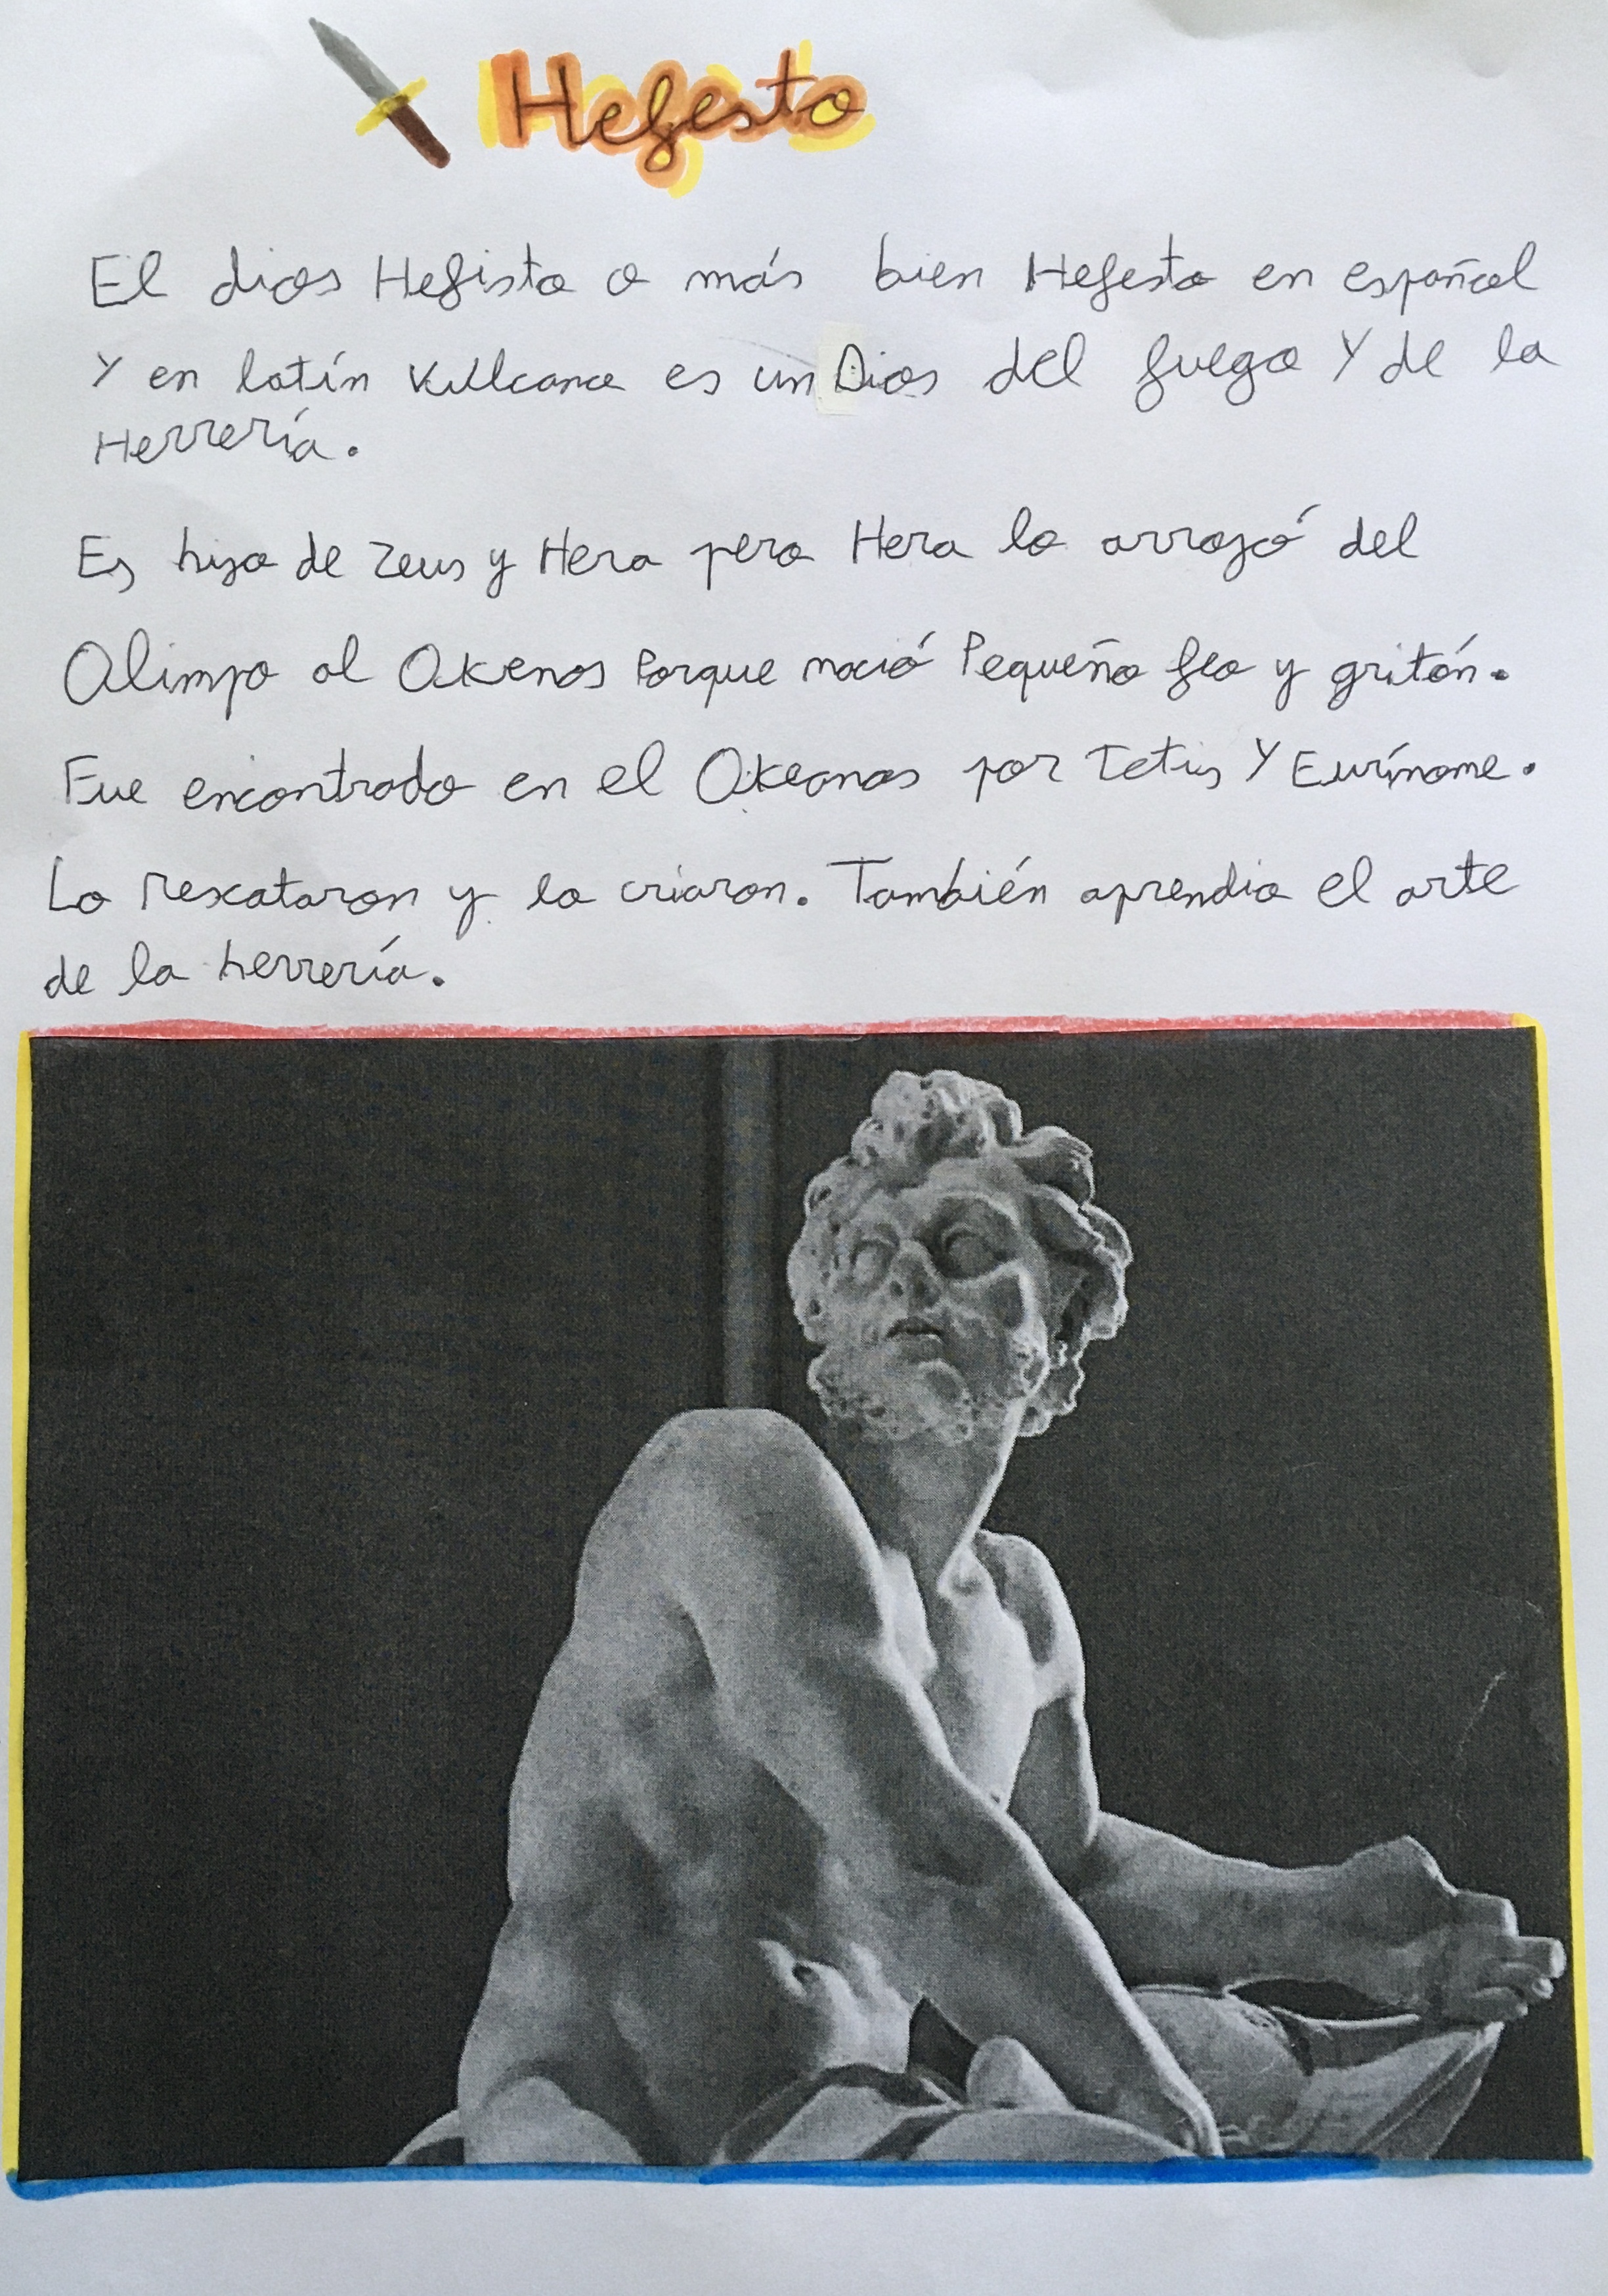 Hefesto
El dios Hefisto o más bien Hefesto en español
Y en latín Vullcano es un Dios del fuego Y de la
Herrería.
Es hijo de Zeus y Hera pero Hera lo arrojó del
Olimpo al Okenos Porque nació Pequeño feo y gritón.
Fue encontrado en el Okeanos por Tetis Y Eurínome.
Lo rescataron y lo criaron. También aprendio el arte
de la herrería.